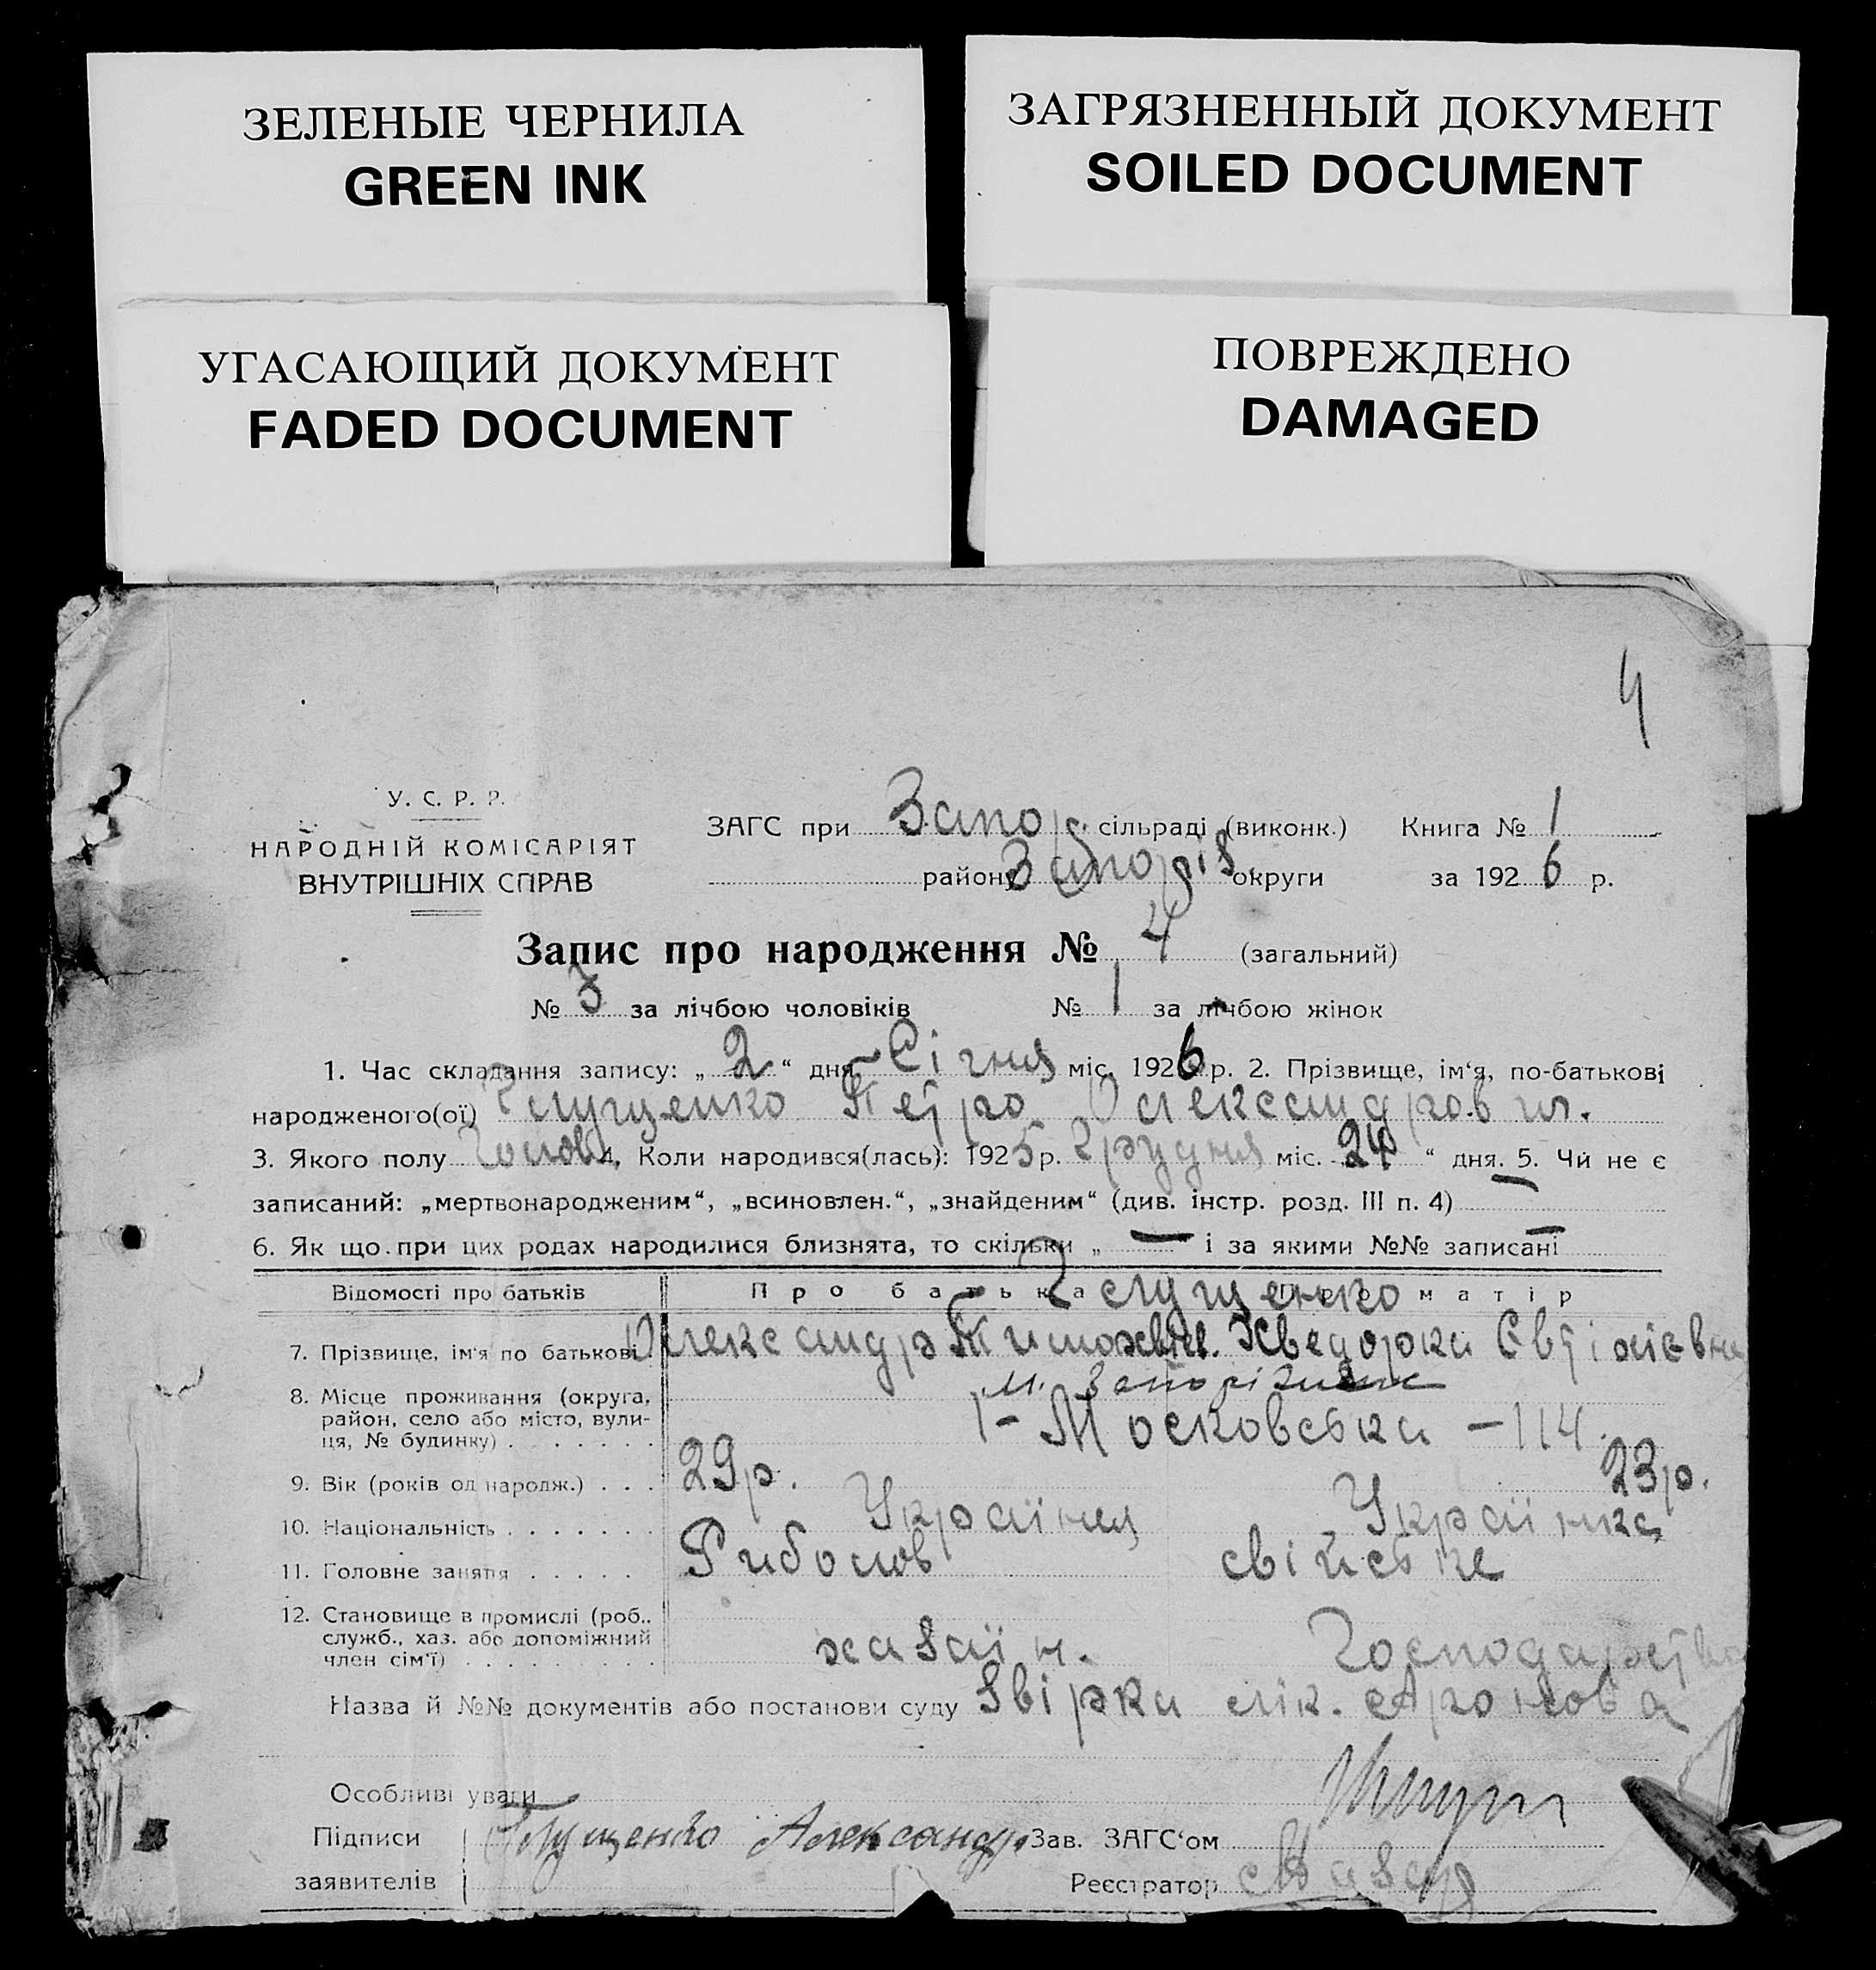 ЗЕЛЕНЫЕ ЧЕРНИЛА
GREEN INK
ЗАГРЯЗНЕННЫЙ ДОКУМЕНТ
SOILED DOCUMENT
УГАСАЮЩИЙ ДОКУМЕНТ
FADED DOCUMENT
ПОВРЕЖДЕНО
DAMAGED
4
У. С. Р. Р.
НАРОДНІЙ КОМІСАРІЯТ
ВНУТРІШНІХ СПРАВ
ЗАГС при Запор. сільраді (виконк.) Книга № 1
району Запоріз. округи за 1926 р.
Запис про народження № 4 (загальний)
№ 3 за лічбою чоловіків № 1 за лічбою жінок
1. Час складання запису: „ 2 “ дня Січня міс. 1926 р. 2. Прізвище, ім‘я, по-батькові
народженого(ої) Глущенко Петро Олександров ич.
3. Якого полу Чолов 4. Коли народився(лась): 1925 р. Грудня міс. 24 “ дня. 5. Чи не є
записаний: „мертвонародженим“, „всиновлен.“, „знайденим“ (див. інстр. розд. III п. 4) —
6. Як що при цих родах народилися близнята, то скільки „ — “ і за якими №№ записані —
Відомості про батьків Про батька Глущенко матір
7. Прізвище, ім‘я по батькові Олександр Тимохв. Хведорка Євтіхієвна
8. Місце проживання (округа, м. Запоріжжє
район, село або місто, вули- Московська – 114.
ця, № будинку)
9. Вік (років од народж.) 29 р. 23 р.
10. Національність Українец Українка
11. Головне заняття Риболов свійське
12. Становище в промислі (роб.,
служб., хаз. або допоміжний хазаїн. Господарство
член сім‘ї)
Назва й №№ документів або постанови суду Звірка лік. Аронова
Особливі уваги
Підписи Глущенко Александр Зав. ЗАГС‘ом
заявителів Реєстратор